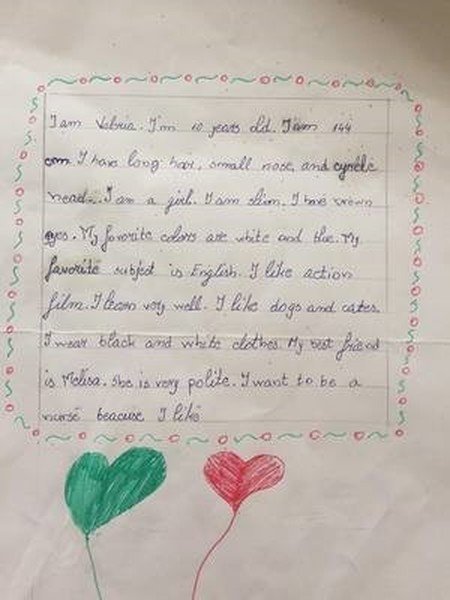 I am Valmira. I'm 10 years old. I am 144
cm I have long hair, small nose, and cyrcle
head. I am a girl. I am slim. I have brown
eyes. My favorite colors are white and blue. My
favorite subject is English. I like action
film. I learn very well. I like dogs and cates.
I wear black and white clothes. My best friend
is Melisa. She is very polite. I want to be a
nurse beacuse I like